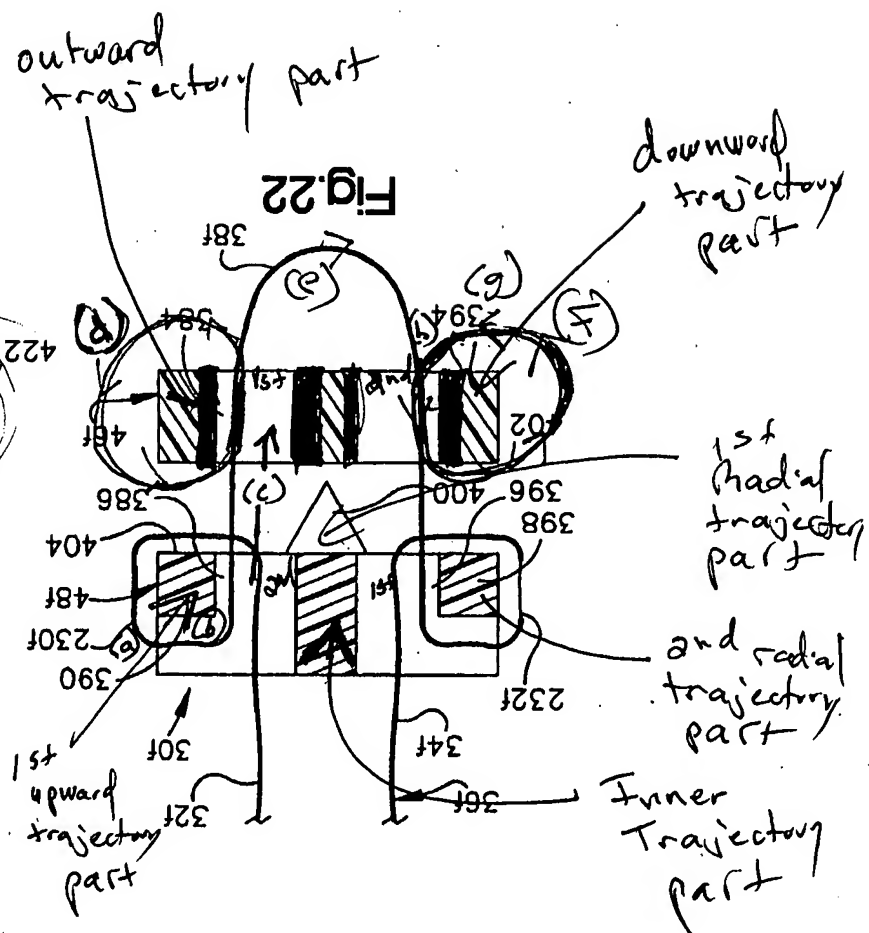 outward
trajectory part
downward
trajectory
part
Fig.22
38f
(e)
(g)
(d)
384
394
(f)
422
1st
2nd
46f
402
(c)
386
400
396
1st
Radial
trajectory
part
404
398
48f
2nd
1st
230f
(a)
(b)
390
232f
2nd radial
trajectory
part
30f
34f
1st
upward
trajectory
part
32f
36f
Inner
Trajectory
part